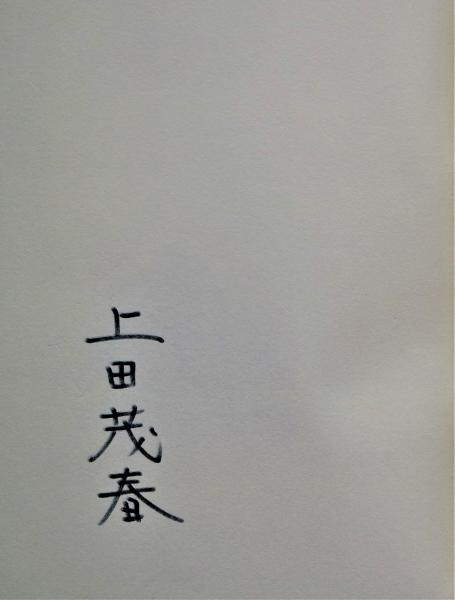 上田茂春